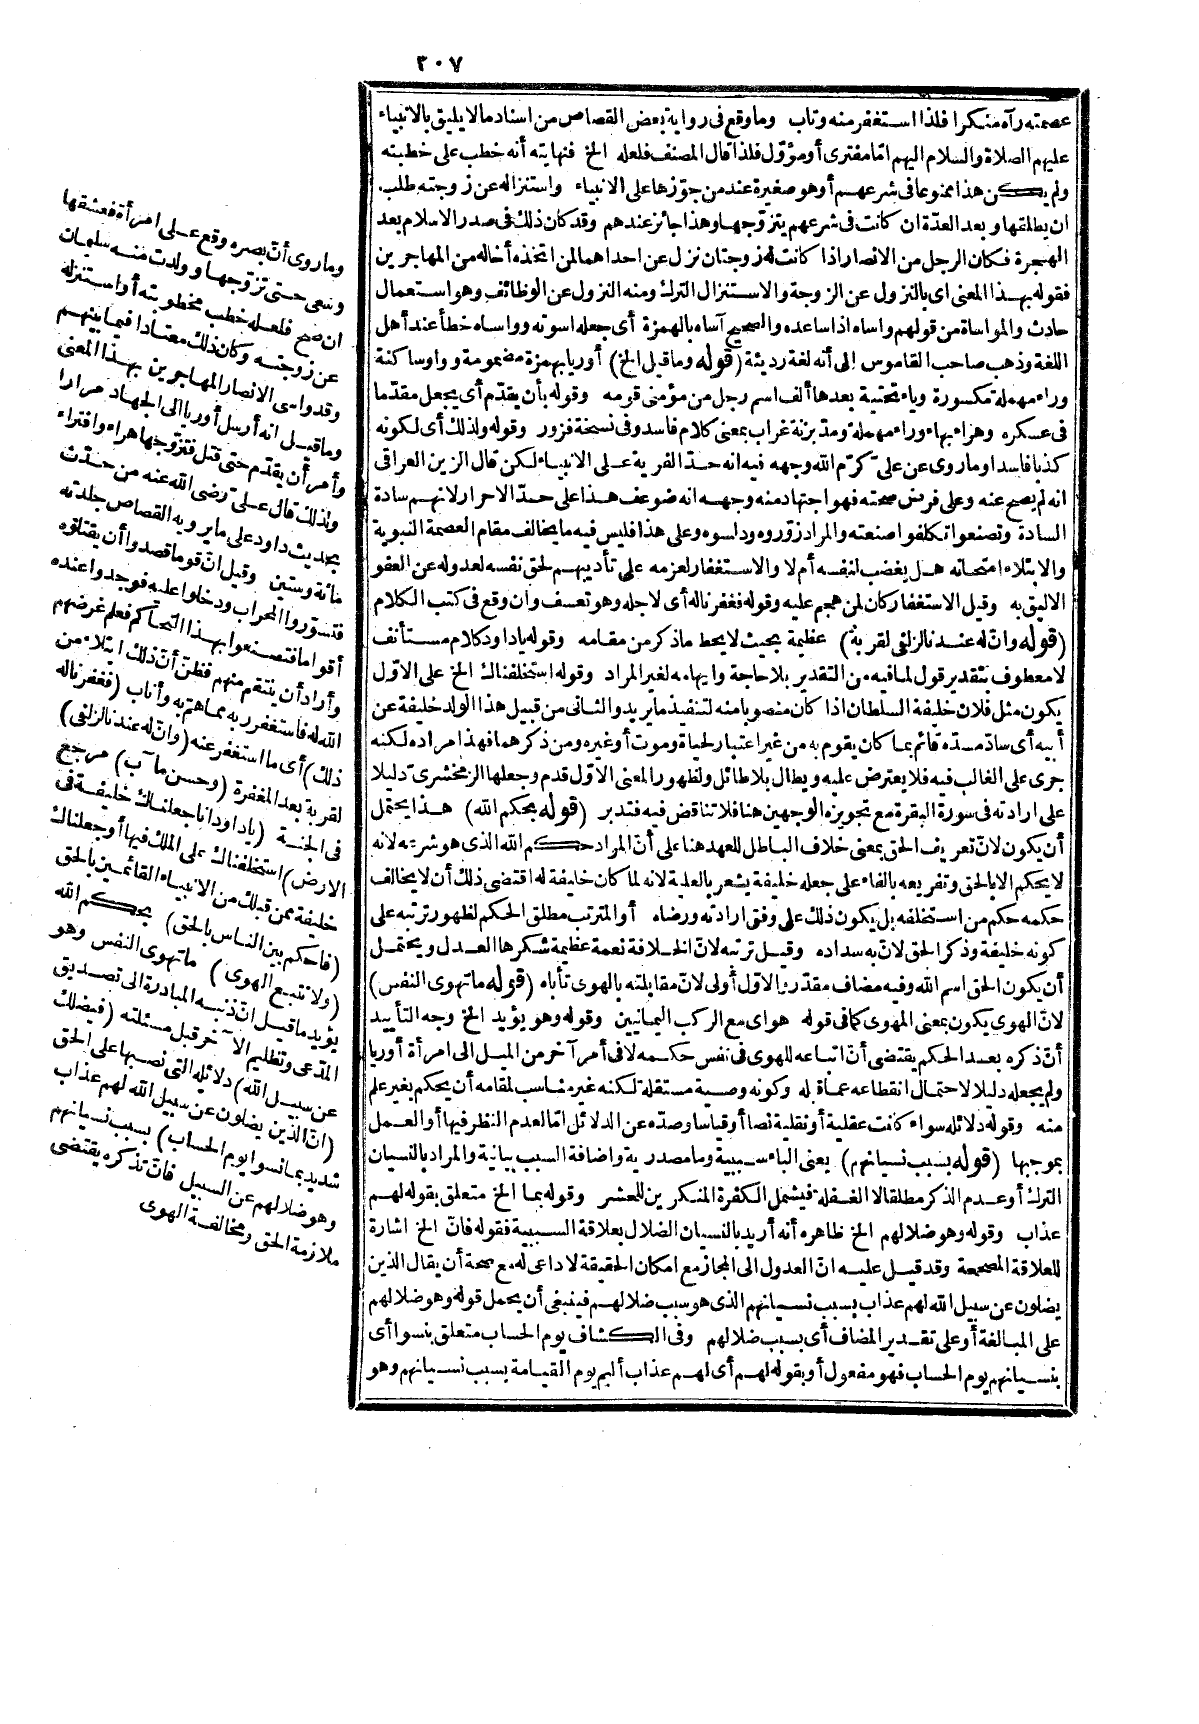 ٣٠٧
عصمته رآه منكرا فلذا استغفر منه وتاب وما وقع فى رواية بعض القصاص من اسناد ما لا يليق بالانبياء
عليهم الصلاة والسلام اليهم امّا مفترى أو مؤوّل فلذا قال المصنف فلعله الخ فنهايته أنه خطب على خطبته
ولم يكن هذا ممنوعا فى شرعهم أو هو صغيرة عند من جوّزها على الانبياء واستنزاله عن زوجته طلب
ان يطلقها وبعد العدّة ان كانت فى شرعهم يتزوّجها وهذا جائز عندهم وقد كان ذلك فى صدر الاسلام بعد
الهجرة فكان الرجل من الانصار اذا كانت له زوجتان نزل عن احداهما لمن اتخذه أخا له من المهاجرين
فقوله بهذا المعنى اى بالنزول عن الزوجة والاستنزال الترك ومنه النزول عن الوظائف وهو استعمال
حادث والمواساة من قولهم واساه اذا ساعده والصحيح آساه بالهمزة أى جعله اسوته وواساه خطأ عند أهل
اللغة وذهب صاحب القاموس إلى أنه لغة رديئة (قوله وما قيل الخ) أوريا بهمزة مضمومة وواو ساكنة
وراء مهملة مكسورة وياء تحتية بعدها ألف اسم رجل من مؤمنى قومه وقوله بأن يقدّم أى يجعل مقدّما
فى عسكره وهزاء بهاء وراء مهملة ومدّ بزنة غراب بمعنى كلام فاسد وفى نسخة فزور وقوله ولذلك أى لكونه
كذبا فاسدا وما روى عن علىّ كرّم الله وجهه فيه انه حدّ الفرية على الانبياء لكن قال الزين العراقى
انه لم يصح عنه وعلى فرض صحته فهو اجتهاد منه ووجهه انه ضوعف هذا على حدّ الاحرار لانهم سادة
السادة وتصنعوا تكلفوا صنعته والمراد زوّروه ودلسوه وعلى هذا فليس فيه ما يخالف مقام العصمة النبوية
والابتلاء امتحانه هل يغضب لنفسه أم لا والاستغفار لعزمه على تأديبهم لحق نفسه لعدوله عن العفو
الاليق به وقيل الاستغفار كان لمن هجم عليه وقوله فغفرنا له أى لاجله وهو تعسف وان وقع فى كتب الكلام
(قوله وانّ له عندنا لزلفى لقربة) عظيمة بحيث لا يحط ماذكر من مقامه وقوله يا داود كلام مستأنف
لا معطوف بتقدير قول لما فيه من التقدير بلا حاجة وايهامه لغير المراد وقوله استخلفناك الخ على الاوّل
يكون مثل فلان خليفة السلطان اذا كان منصوبا منه لتنفيذ ما يريد والثانى من قبيل هذا الولد خليفة عن
أبيه أى سادّ مسدّه قائم بما كان يقوم به من غير اعتبار لحياة وموت أو غيره ومن ذكرهما فهذا مراده لكنه
جرى على الغالب فيه فلا يعترض عليه ويطال بلا طائل ولظهور المعنى الاوّل قدم وجعلها الزمخشرىّ دليلا
على ارادته فى سورة البقرة مع تجويزه الوجهين هنا فلا تناقض فيه فتدبر (قوله بحكم الله) هذا يحتمل
أن يكون لانّ تعريف الحق بمعنى خلاف الباطل للعهد هنا على أنّ المراد حكم الله الذى هو شرعه لانه
لا يحكم الا بالحق وتفريعه بالفاء على جعله خليفة يشعر بالعلية لانه لما كان خليفة له اقتضى ذلك أن لا يخالف
حكمه حكم من استخلفه بل يكون ذلك على وفق ارادته ورضاه أو المترتب مطلق الحكم لظهور ترتبه على
كونه خليفة وذكر الحق لانّ به سداده وقيل ترتبه لانّ الخلافة نعمة عظيمة شكرها العدل ويحتمل
أن يكون الحق اسم الله وفيه مضاف مقدّر والاوّل أولى لانّ مقابلته بالهوى تأباه (قوله ما تهوى النفس)
لانّ الهوى يكون بمعنى المهوى كما فى قوله هواى مع الركب اليمانيين وقوله وهو يؤيد الخ وجه التأييد
أنّ ذكره بعد الحكم يقتضى أنّ اتباعه للهوى فى نفس حكمه لا فى أمر آخر من الميل الى امرأة أوريا
ولم يجعله دليلا لاحتمال انقطاعه عما قبله وكونه وصية مستقلة لكنه غير مناسب لمقامه أن يحكم بغير علم
منه وقوله دلائله سواء كانت عقلية أو نقلية نصا أو قياسا وصدّه عن الدلائل امّا لعدم النظر فيها أو العمل
بموجبها (قوله بسبب نسيانهم) يعنى الباء سببية وما مصدرية واضافة السبب بيانية والمراد بالنسيان
الترك أو عدم الذكر مطلقا لا الغفلة فيشمل الكفرة المنكرين للحشر وقوله بما الخ متعلق بقوله لهم
عذاب وقوله وهو ضلالهم الخ ظاهره أنه أريد بالنسيان الضلال بعلاقة السببية فقوله فانّ الخ اشارة
للعلاقة المصححة وقد قيل عليه انّ العدول الى المجاز مع امكان الحقيقة لا داعى له مع صحة أن يقال الذين
يضلون عن سبيل الله لهم عذاب بسبب نسيانهم الذى هو سبب ضلالهم فينبغى أن يحمل قوله وهو ضلالهم
على المبالغة أو على تقدير المضاف أى بسبب ضلالهم وفى الكشاف يوم الحساب متعلق بنسوا أى
بنسيانهم يوم الحساب فهو مفعول أو بقوله لهم أى لهم عذاب أليم يوم القيامة بسبب نسيانهم وهو
وما روى أنّ بصره وقع على امرأة فعشقها
وسعى حتى تزوّجها وولدت منه سليمان
ان صح فلعله خطب مخطوبته أو استنزله
عن زوجته وكان ذلك معتادا فيما بينهم
وقد واسى الانصار المهاجرين بهذا المعنى
وما قيل انه أرسل أوريا الى الجهاد مرارا
وأمر أن يقدّم حتى قتل فتزوّجها هراء وافتراء
ولذلك قال علىّ رضى الله عنه من حدّث
بحديث داود على ما يرويه القصاص جلدته
مائة وستين وقيل انّ قوما قصدوا أن يقتلوه
فتسوّروا المحراب ودخلوا عليه فوجدوا عنده
أقواما فتصنعوا بهذا التحاكم فعلم غرضهم
وأراد أن ينتقم منهم فظنّ أنّ ذلك ابتلاء من
الله له فاستغفر ربه مما هتم به وأناب (فغفرنا له
ذلك) أى ما استغفر عنه (وانّ له عندنا لزلفى)
لقربة بعد المغفرة (وحسن مآب) مرجع
فى الجنة (يا داود انا جعلناك خليفة فى
الارض) استخلفناك على الملك فيها أو جعلناك
خليفة ممن قبلك من الانبياء القائمين بالحق
(فاحكم بين الناس بالحق) بحكم الله
(ولا تتبع الهوى) ما تهوى النفس وهو
يؤيد ما قيل انّ ذنبه المبادرة الى تصديق
المدّعى وتظليم الآخر قبل مسئلته (فيضلك
عن سبيل الله) دلائله التى نصبها على الحق
(انّ الذين يضلون عن سبيل الله لهم عذاب
شديد بما نسوا يوم الحساب) بسبب نسيانهم
وهو ضلالهم عن السبيل فانّ تذكره يقتضى
ملازمة الحق ومخالفة الهوى